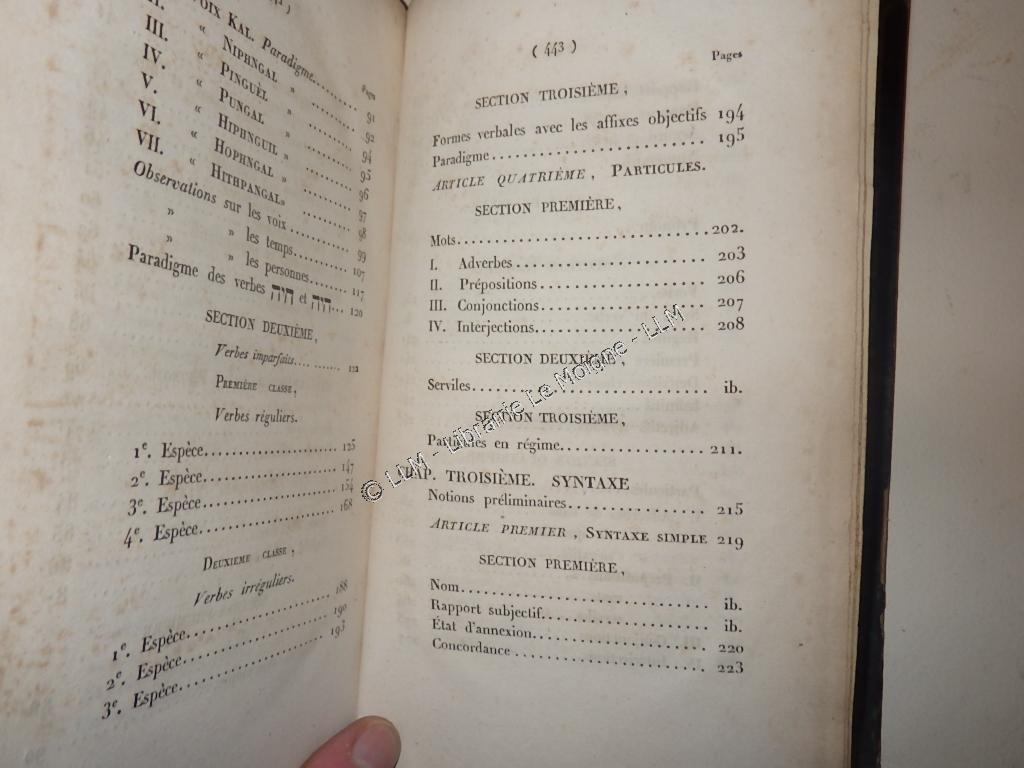 VOIX KAL. Paradigme
Pages
III. « NIPHNGAL » 91
IV. « PINGUÈL » 92
V. « PUNGAL » 94
VI. « HIPHNGUIL » 95
« HOPHNGAL » 96
VII. « HITHPANGAL » 97
Observations sur les voix 98
» » les temps 99
» » les personnes 107
117
Paradigme des verbes היה et חיה 120
SECTION DEUXIÈME,
Verbes imparfaits 122
PREMIÈRE CLASSE,
Verbes réguliers.
1e. Espèce 125
2e. Espèce 147
3e. Espèce 154
4e. Espèce 168
DEUXIÈME CLASSE,
Verbes irréguliers.
1e. Espèce 188
2e. Espèce 190
3e. Espèce 193
( 443 )
Pages
SECTION TROISIÈME,
Formes verbales avec les affixes objectifs 194
Paradigme 195
ARTICLE QUATRIÈME, PARTICULES.
SECTION PREMIÈRE,
Mots 202.
I. Adverbes 203
II. Prépositions 206
III. Conjonctions 207
IV. Interjections 208
SECTION DEUXIÈME,
Serviles ib.
SECTION TROISIÈME,
Particules en régime 211.
CHAP. TROISIÈME. SYNTAXE
Notions préliminaires 215
ARTICLE PREMIER, SYNTAXE SIMPLE 219
SECTION PREMIÈRE,
Nom ib.
Rapport subjectif ib.
État d'annexion 220
Concordance 223
© LLM - Librairie Le Moigne - LLM